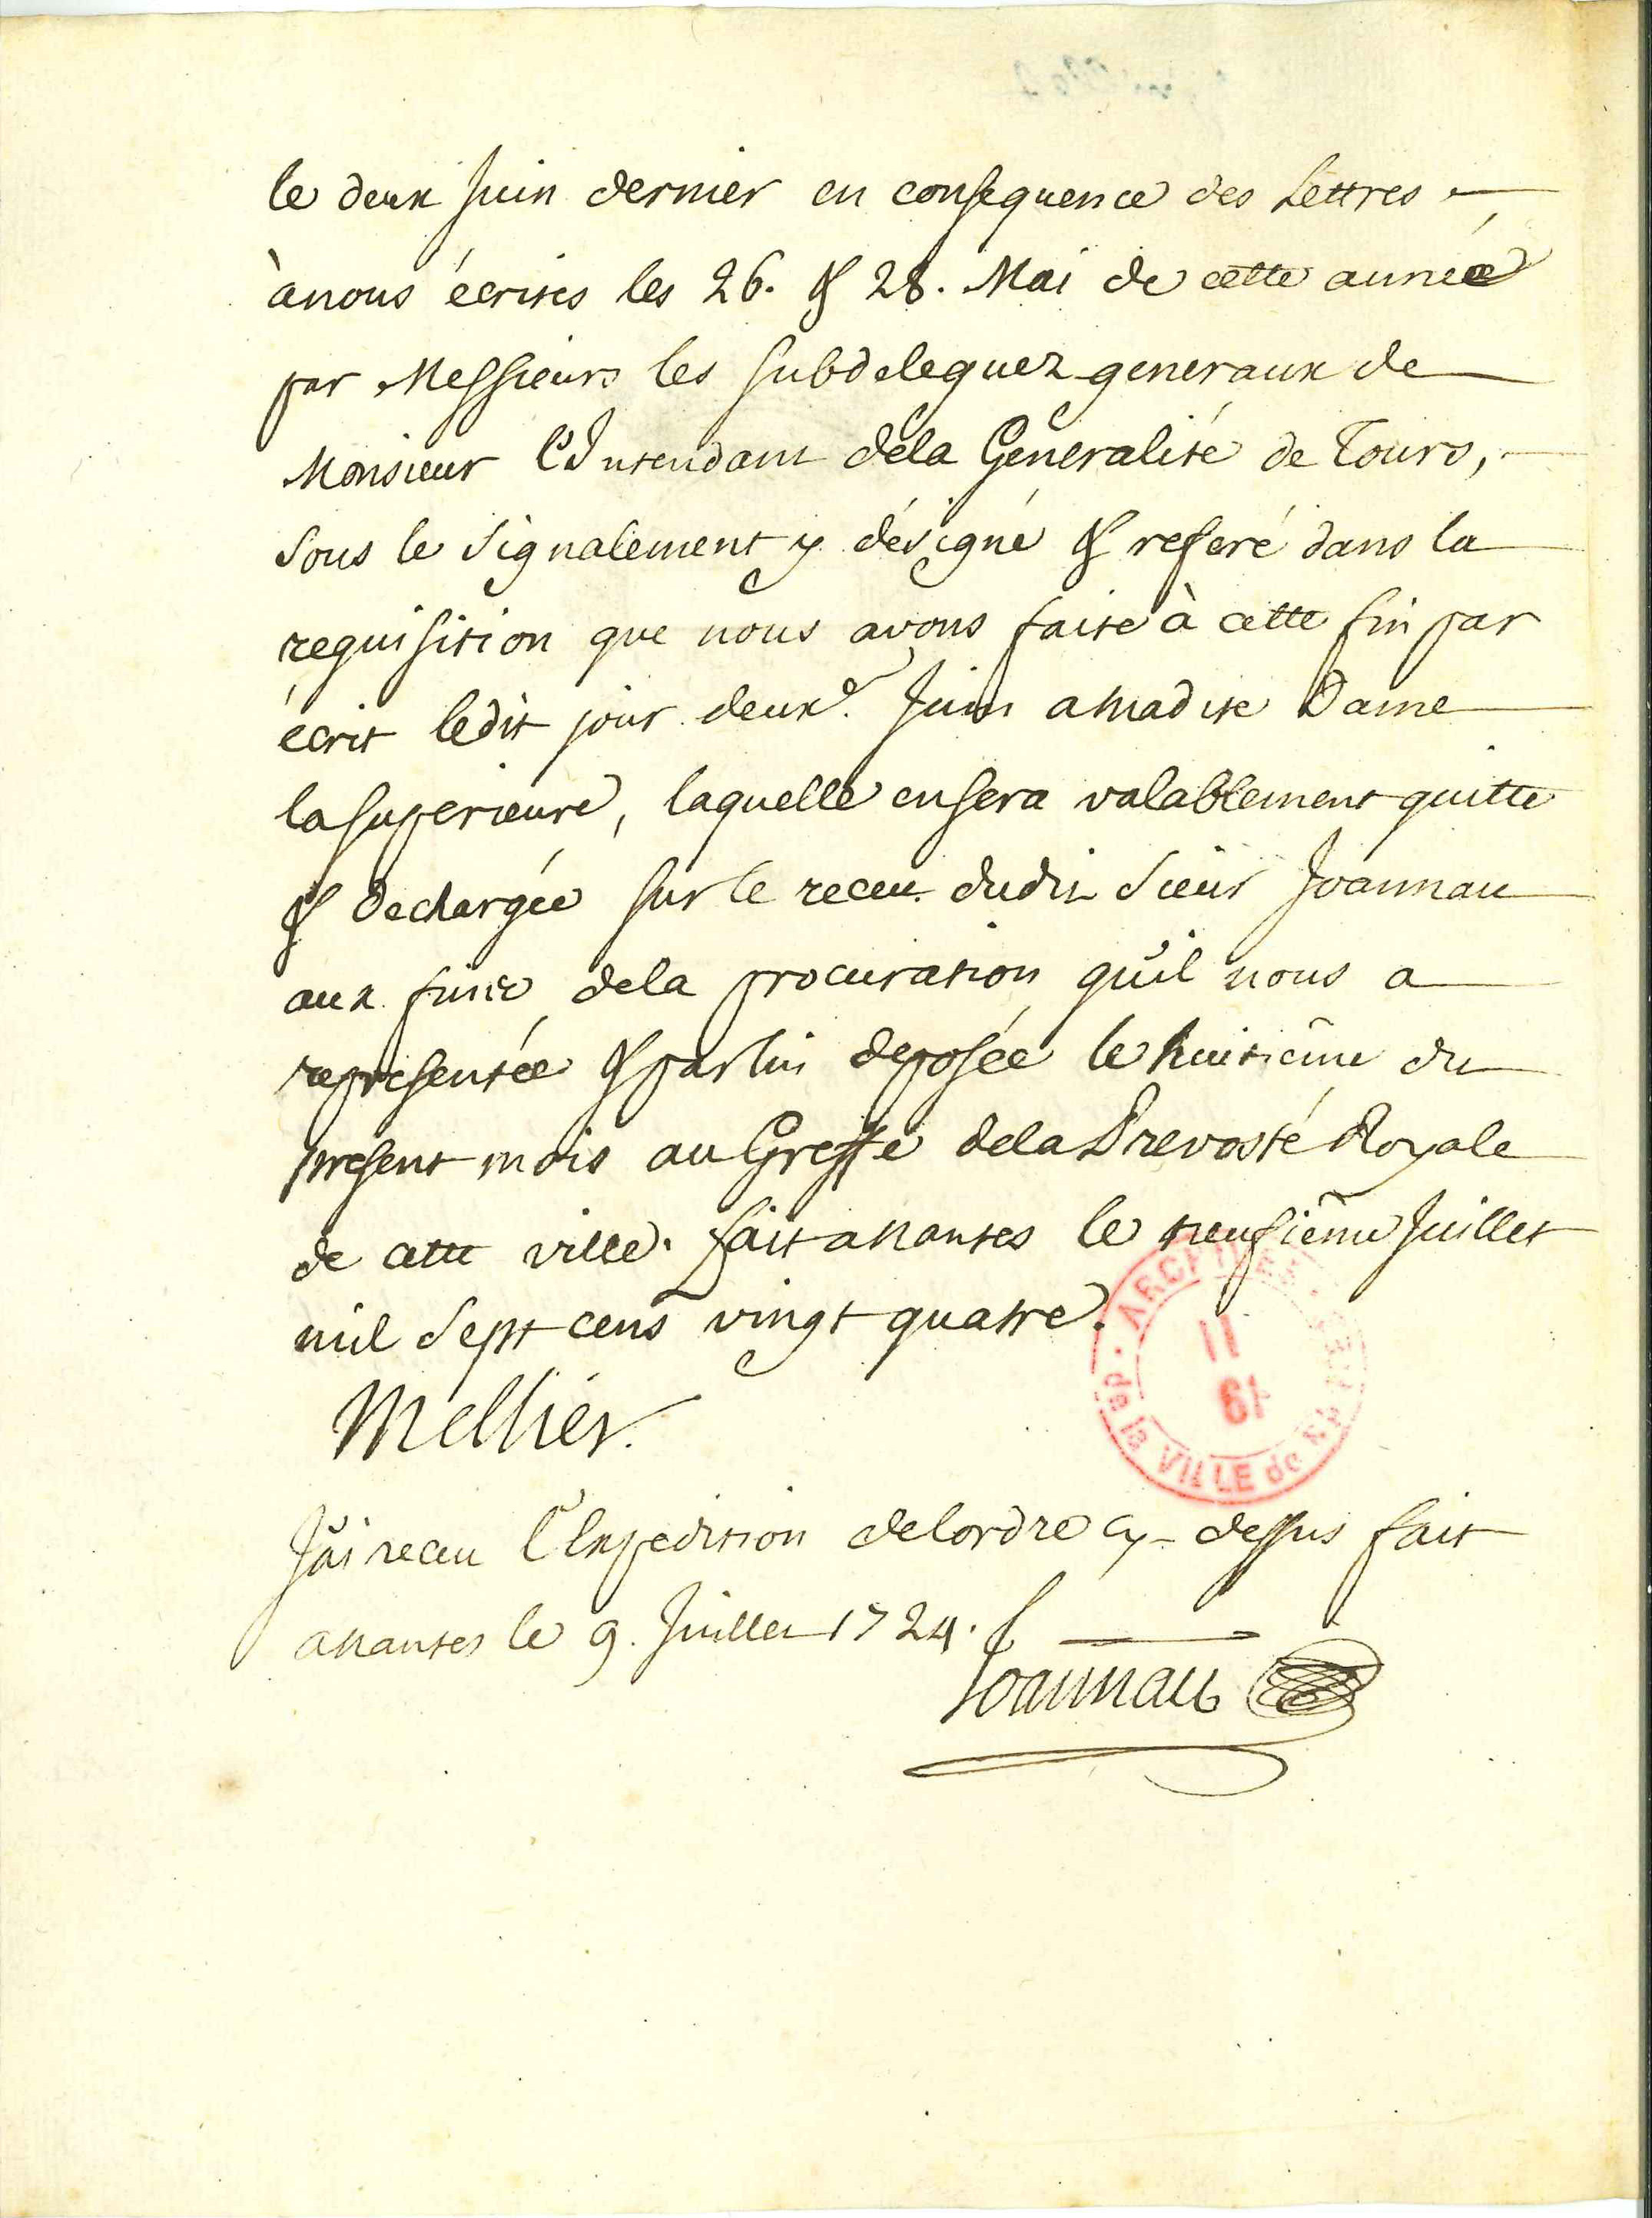 le deux Juin dernier en consequence des Lettres
à nous écrites les 26. & 28. Mai de cette année
par Messieurs les subdeleguez generaux de
Monsieur l'Intendant dela Géneralité de Tours,
sous le signalement y désigné & referé dans la
requisition que nous avons faite à cette fin par
écrit ledit jour deux.e Juin a madite Dame
la superieure, laquelle en sera valablement quitte
& dechargée sur le receu dudit sieur Joannau
aux fins dela procuration qu'il nous a
representée & par lui deposée le huitiême du
present mois au Greffe dela Prevosté Royale
de cette ville. fait a nantes le neufiême Juillet
mil sept cens vingt quatre.
Mellier.
J'ai receu l'Expedition de lordre cy-dessus fait
a nantes le 9. Juillet 1724.
Joannau
ARCHIVES
de la VILLE de
II
19